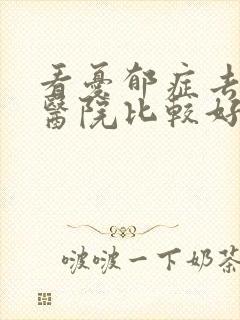 看憂郁症去
醫院比較好
啵啵一下奶茶